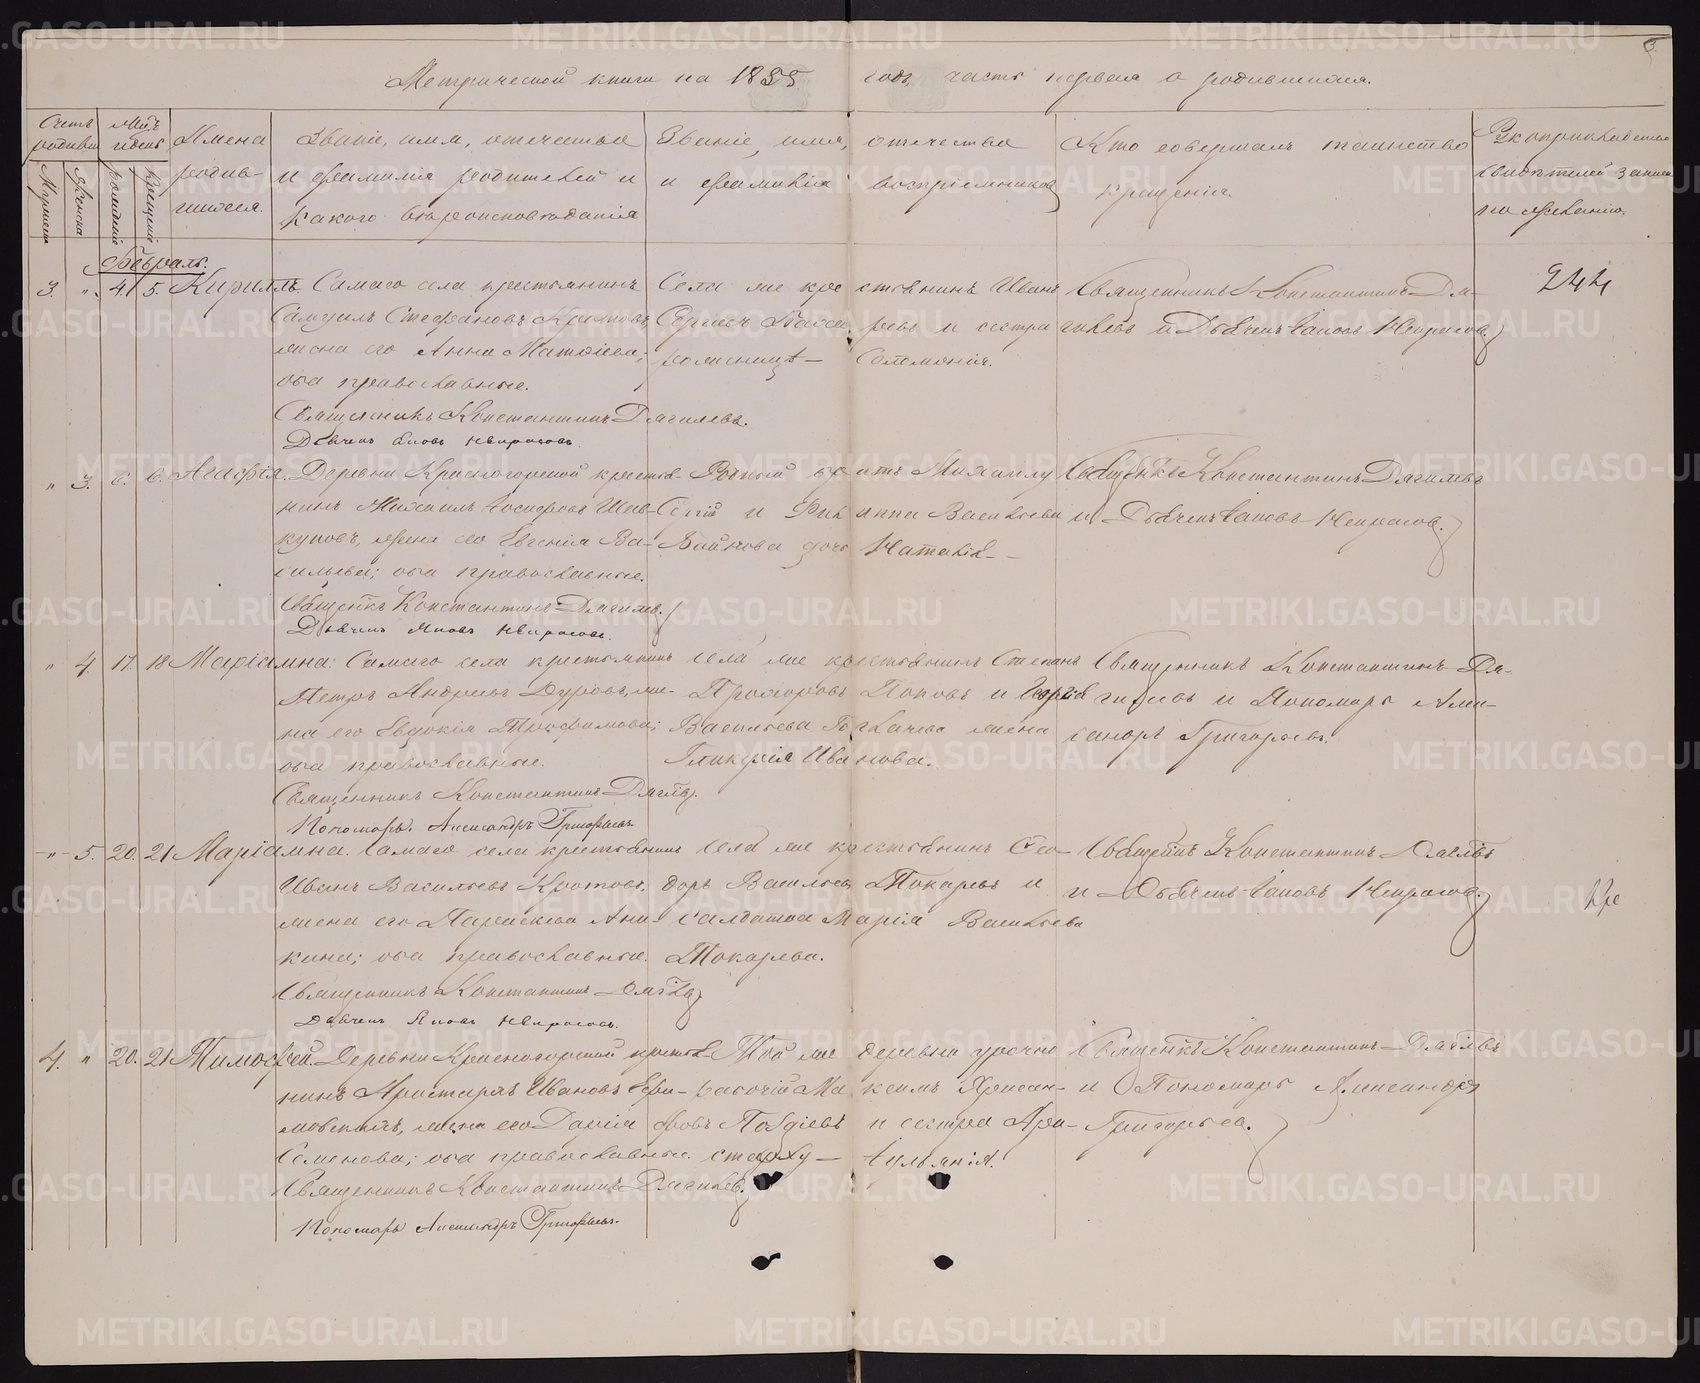 Метрической книги на 1885 годъ, часть первая о родившихся.
Счетъ родивш.
Мужеска
Женска
Мѣс. и день
рожденія
крещенія
Имена родившихся.
Званіе, имя, отчество и фамилія родителей и какого вѣроисповѣданія
Званіе, имя, отчество и фамилія воспріемниковъ
Кто совершалъ таинство крещенія.
Рукоприкладство свидѣтелей записи по желанію.
Февраль.
3. " 4. 5. Кириллъ.
Самаго села крестьянинъ
Самуилъ Стефановъ Кротовъ,
жена его Анна Матвіева;
оба православные.
Священникъ Константинъ Дягилевъ.
Дьячекъ Іаковъ Некрасовъ.
Села же крестьянинъ Иванъ
Сергіевъ и сестра
роженицы Соломонія.
Священникъ Константинъ Дягилевъ
и Дьячекъ Іаковъ Некрасовъ.
" 3. 6. 6. Агафія.
Деревни Красногорской крестьянинъ
Михаилъ Іосифовъ
жена его Евгенія Васильева;
оба православные.
Священникъ Константинъ Дягилевъ.
Дьячекъ Іаковъ Некрасовъ.
Родный братъ Михаилу
Сергій и Филиппа Васильева
дочь Наталія
Священникъ Константинъ Дягилевъ
и Дьячекъ Іаковъ Некрасовъ.
" 4. 17. 18 Маріамна.
Самаго села крестьянинъ
Петръ Андреевъ Дуровъ, жена
его Евдокія Трофимова;
оба православные.
Священникъ Константинъ Дягилевъ.
Пономарь Александръ Григорьевъ.
Села же крестьянинъ Степанъ
Прохоровъ Поповъ и Георгія
Васильева жена
Гликерія Иванова.
Священникъ Константинъ Дягилевъ
и Пономарь Александръ
Григорьевъ.
" 5. 20. 21 Маріамна.
Самаго села крестьянинъ
Иванъ Васильевъ Кротовъ,
жена его Параскева Аникина;
оба православные.
Священникъ Константинъ Дягилевъ
Дьячекъ Іаковъ Некрасовъ.
Села же крестьянинъ Ѳеодоръ
Васильевъ Токаревъ и
салдатка Марія Васильева
Токарева.
Священникъ Константинъ Дягилевъ
и Дьячекъ Іаковъ Некрасовъ.
4. " 20. 21 Тимофей.
Деревни Красногорской крестьянинъ
Аристархъ Ивановъ
жена его Дарія
Семенова; оба православные.
Священникъ Константинъ Дягилевъ.
Пономарь Александръ Григорьевъ.
Той же деревни урочно
рабочій Максимъ Хрисанфовъ
и сестра Аристарху
Іуліанія.
Священникъ Константинъ Дягилевъ
и Пономарь Александръ
Григорьевъ.
METRIKI.GASO-URAL.RU